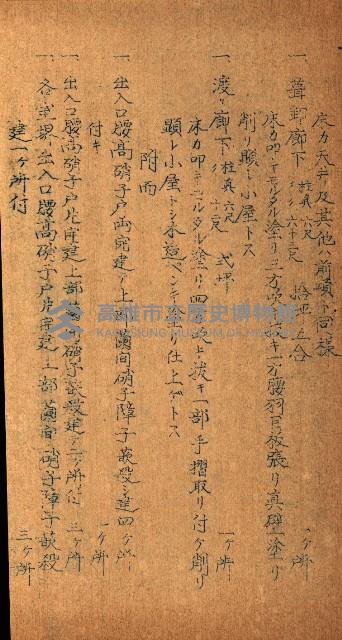 床カ天井及其他ハ前項ト同様
一、葺卸廊下 柱真 六尺 〃 六十二尺 拾弐坪五合 一ヶ所
床カ叩キモルタル塗リ三方吹放キ一方腰羽目板張リ真壁塗リ
削リ顕シ小屋トス
一、渡リ廊下 柱真 六尺 〃 十二尺 弐坪 一ヶ所
床カ叩キモルタル塗リ四方吹キ放キ一部手摺取リ付ケ削リ
顕シ小屋トシ木造ペンキ塗リ仕上ゲトス
附雨
一、出入口腰高硝子戸両開建テ上部蘭間硝子障子嵌殺シ建四ヶ所
付キ 一ヶ所
一、出入口腰高硝子戸片開建上部 硝子嵌殺建二ヶ所付 三ヶ所
一、各室界出入口腰高硝子戸片開建上部蘭間硝子障子嵌殺
建一ヶ所付 三ヶ所
高雄市立歷史博物館
KAOHSIUNG MUSEUM OF HISTORY